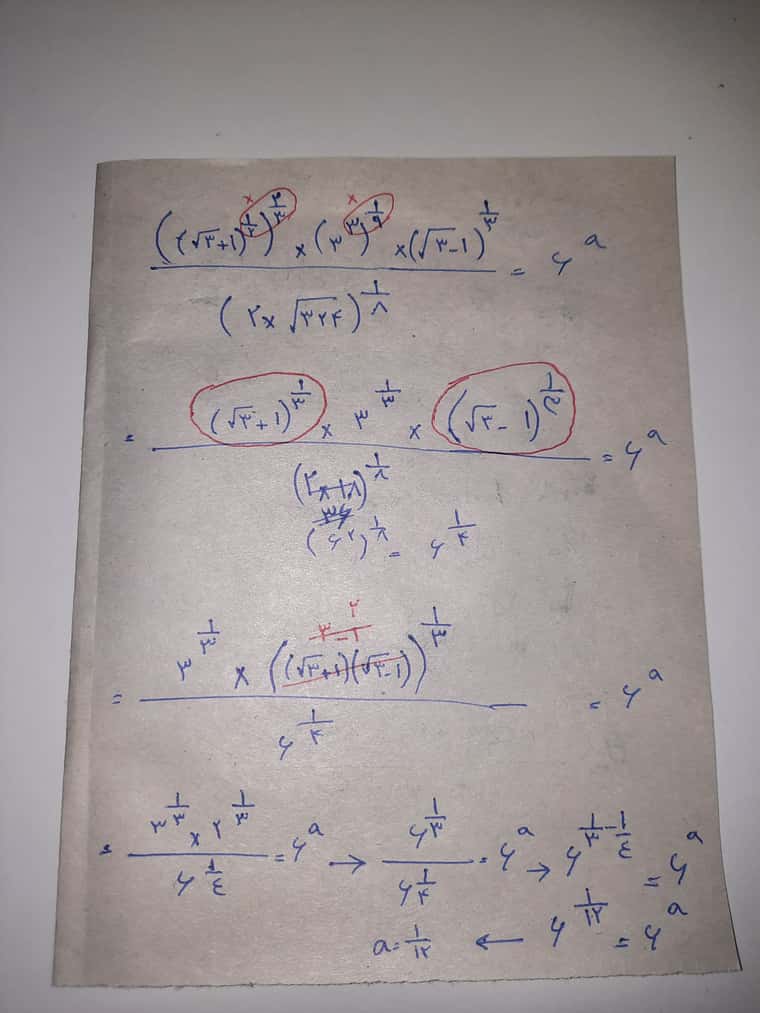 ((√۳+۱)^(۱/۲))^(۲/۳) × (۳^۳)^(۱/۹) × (√۳-۱)^(۱/۳) / (۲×√۳۲۴)^(۱/۸) = ۶^a
= (√۳+۱)^(۱/۳) × ۳^(۱/۳) × (√۳-۱)^(۱/۳) / (۲×۱۸)^(۱/۸) = ۶^a
۳۶
(۶^۲)^(۱/۸) = ۶^(۱/۴)
۲
۳-۱
= ۳^(۱/۳) × ((√۳+۱)(√۳-۱))^(۱/۳) / ۶^(۱/۴) = ۶^a
= ۳^(۱/۳) × ۲^(۱/۳) / ۶^(۱/۴) = ۶^a → ۶^(۱/۳) / ۶^(۱/۴) = ۶^a → ۶^(۱/۳-۱/۴) = ۶^a
a=۱/۱۲ ← ۶^(۱/۱۲) = ۶^a